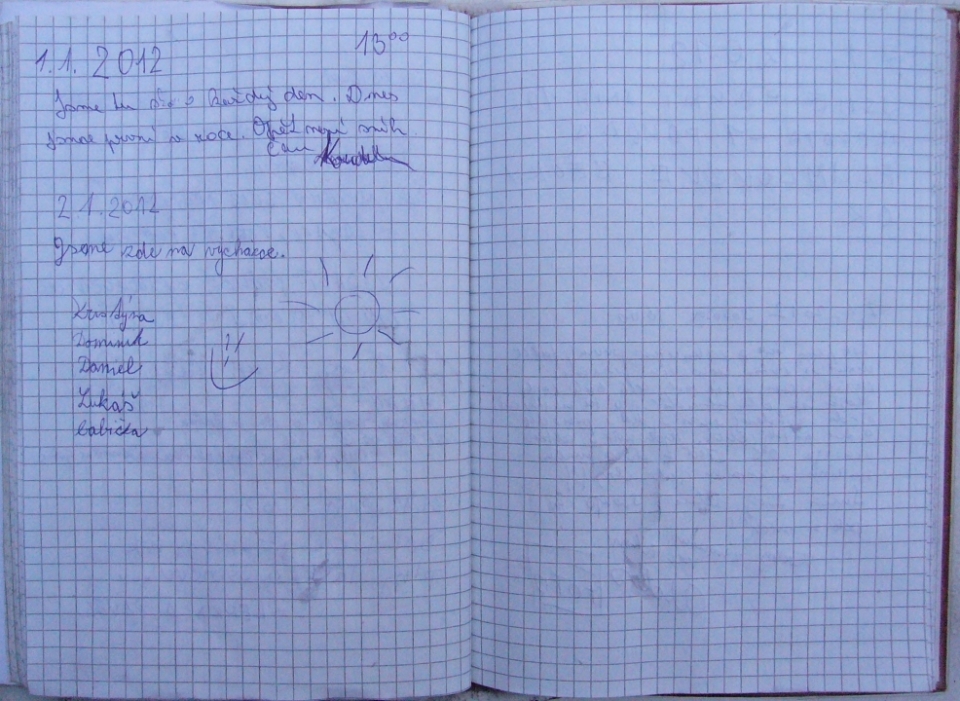 1.1. 2012 13⁰⁰
Jsme tu každý den. Dnes
jsme první v roce. Opět není sníh
2.1.2012
Jsme zde na vycházce.
Kristýna
Dominik
Daniel
Lukáš
babička